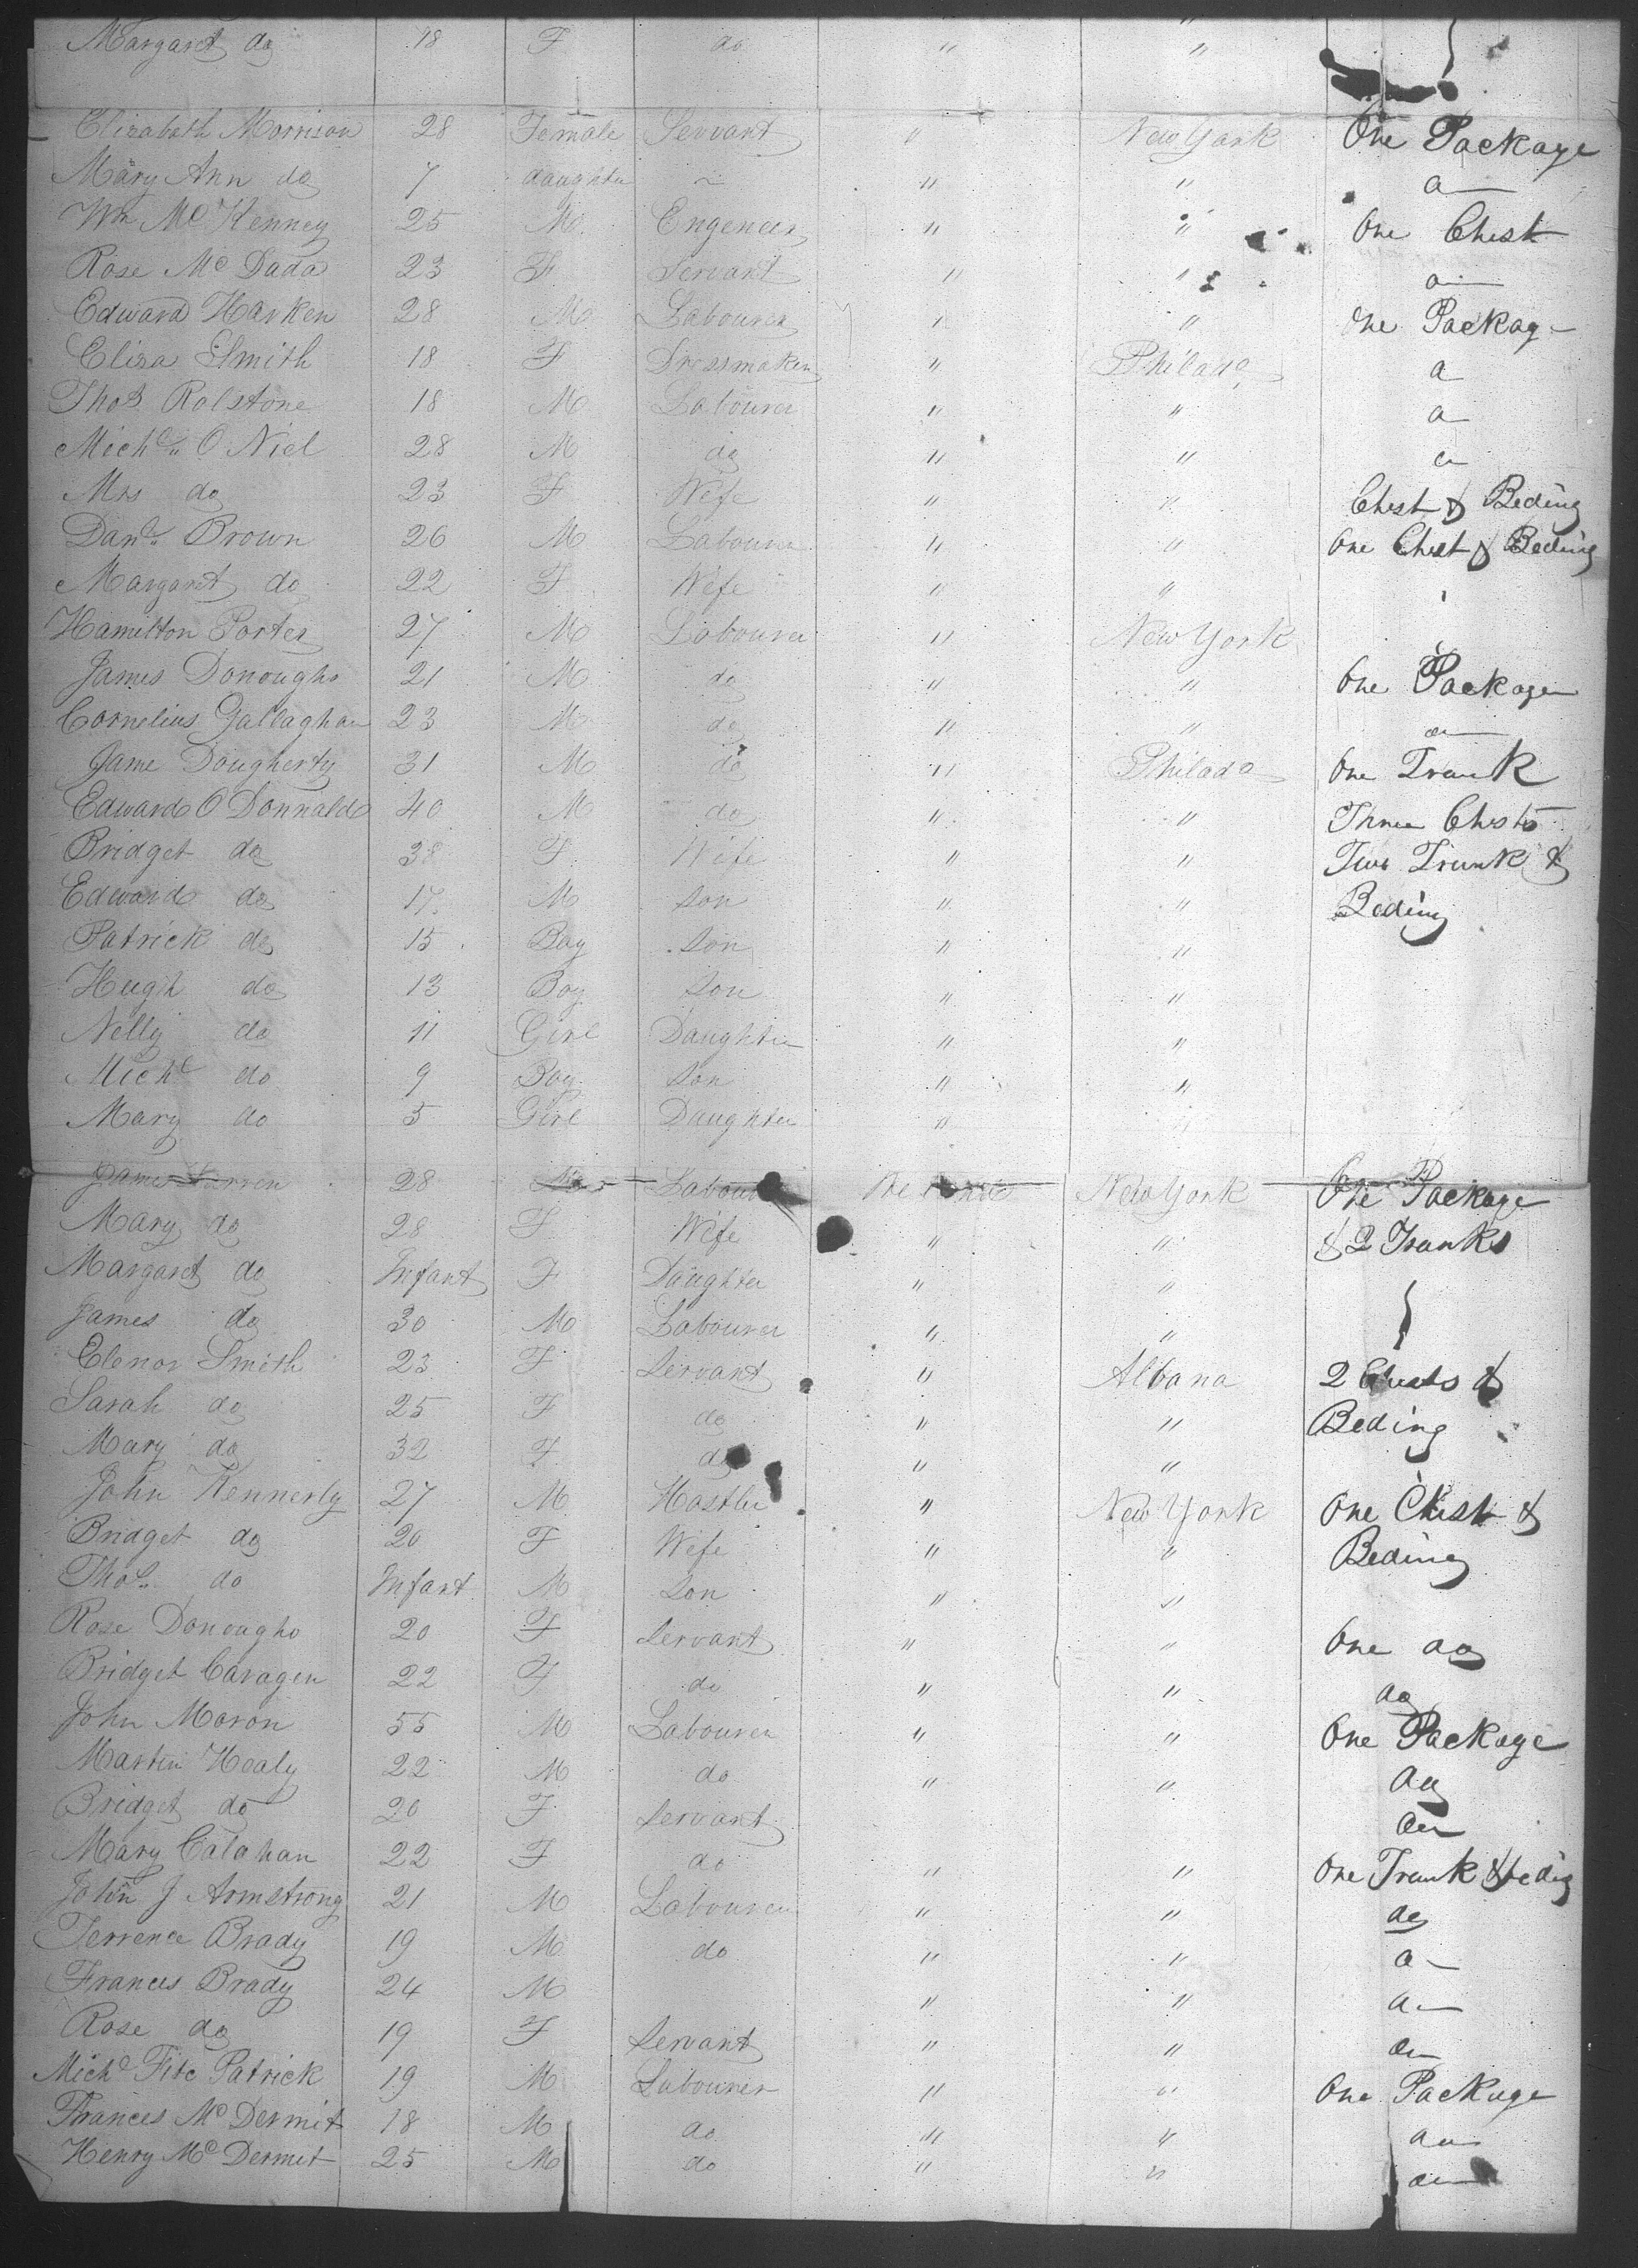 Margaret do 18 F do " "
Elizabeth Morrison 28 Female Servant " New York One Package
Mary Ann do 7 daughter ~ " " a
Wm Mc Kenney 25 M Engeneer " " One Chest
Rose Mc Dada 23 F Servant " " a
Edward Harken 28 M Labourer " " One Packag
Eliza Smith 18 F Dressmaker " Philada a
Thos Ralstone 18 M Labourer " " a
Michl O Niel 28 M do " " a
Mrs do 23 F Wife " " Chest & Beding
Danl Brown 26 M Labourer " " One Chest & Beding
Margaret do 22 F Wife " "
Hamilton Porter 27 M Labourer " New York
James Donougho 21 M do " " One Package
Cornelius Gallaghar 23 M do " "
Jame Dougherty 31 M do " Philada One Trunk
Edward O Donnald 40 M do " " Three Chests
Bridget do 38 F Wife " " Two Trunk &
Edward do 17 M Son " " Beding
Patrick do 15 Boy Son " "
Hugh do 13 Boy Son " "
Nelly do 11 Girl Daughter " "
Michl do 9 Boy Son " "
Mary do 5 Girl Daughter " "
James 28 Labour New York One Package
Mary do 28 F Wife " " & 2 Trunks
Margaret do Infant F Daughter " "
James do 30 M Labourer " "
Elenor Smith 23 F Servant " Albana 2 Chests &
Sarah do 25 F do " " Beding
Mary do 32 F do " "
John Kennerly 27 M Hostler " New York One Chest &
Bridget do 20 F Wife " " Beding
Thos do Infant M Son " "
Rose Donougho 20 F Servant " " One do
Bridget Cavagen 22 F do " " do
John Moron 55 M Labourer " " One Package
Martin Healy 22 M do " " do
Bridget do 20 F Servant do
Mary Calahan 22 F do " " One Trunk & bedig
John J Armstrong 21 M Labourer " " do
Terrence Brady 19 M do " " a
Frances Brady 24 M " " a
Rose do 19 F Servant " " do
Michl Fitc Patrick 19 M Labourer " " One Package
Frances Mc Dermit 18 M do " " do
Henry Mc Dermit 25 M do " " do